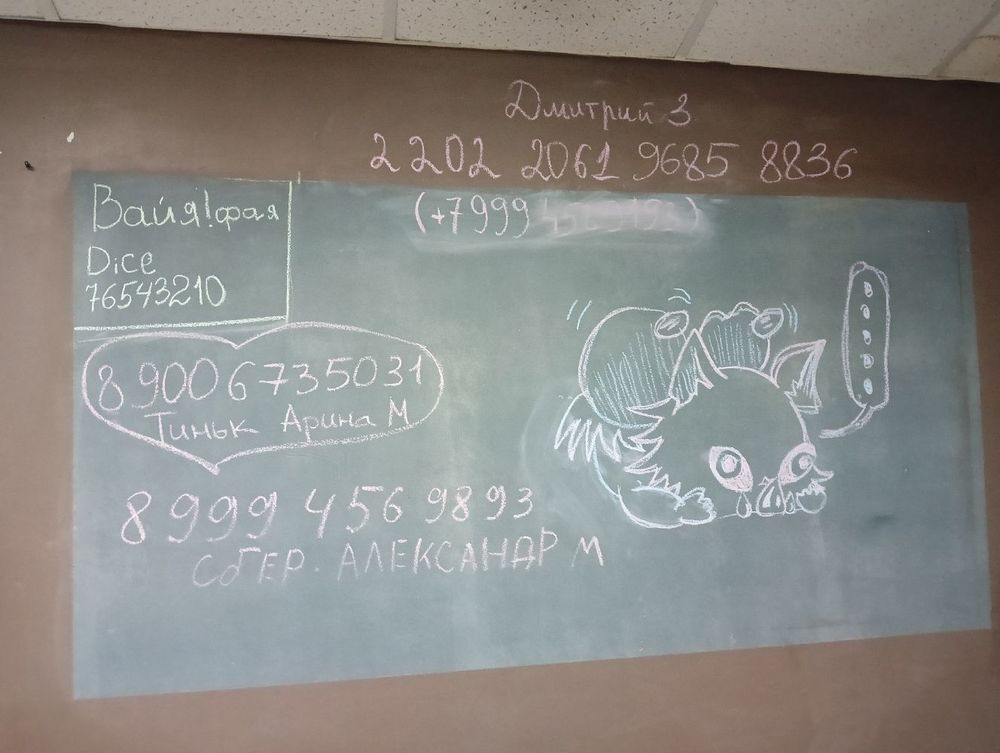 Дмитрий З
2202 2061 9685 8836
(+7999
Вайя!фая
Dice
76543210
8 900 6735031
Тиньк Арина М
8 999 456 9893
СбЕР. АЛЕКСАНДР М